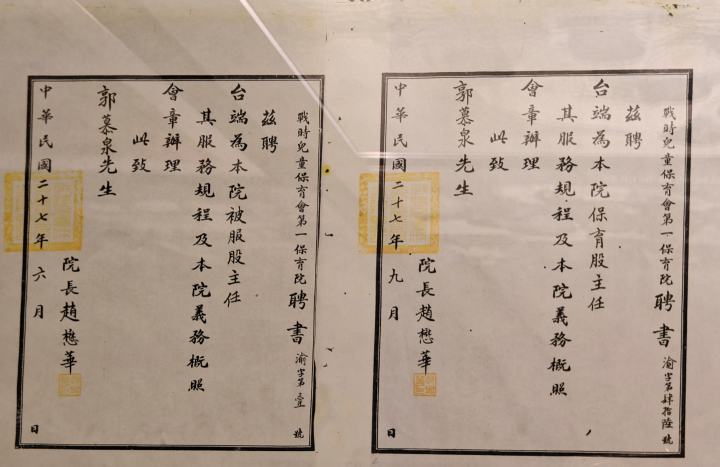 戰時兒童保育會第一保育院聘書 渝字第肆拾陸號
茲聘
台端為本院保育股主任
其服務規程及本院義務概照
會章辦理
此致
郭慕泉先生
院長趙懋華
中華民國二十七年九月 日
戰時兒童保育會第一保育院聘書 渝字第壹號
茲聘
台端為本院被服股主任
其服務規程及本院義務概照
會章辦理
此致
郭慕泉先生
院長趙懋華
中華民國二十七年六月 日